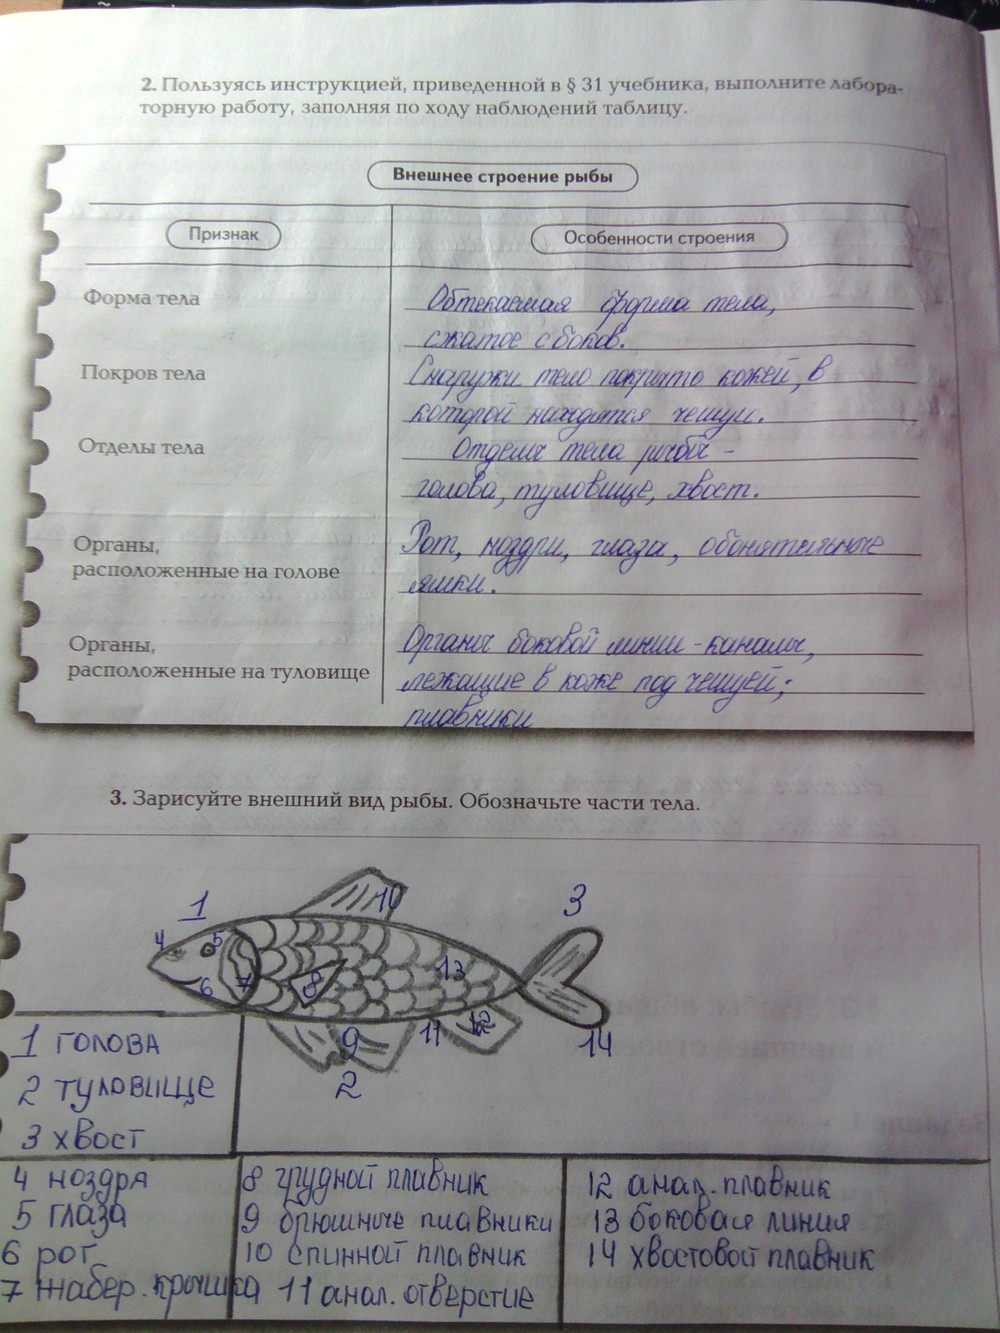 2. Пользуясь инструкцией, приведенной в § 31 учебника, выполните лабора-
торную работу, заполняя по ходу наблюдений таблицу.
Внешнее строение рыбы
Признак
Особенности строения
Форма тела
Обтекаемая форма тела,
сжатое с боков.
Покров тела
Снаружи тело покрыто кожей, в
которой находятся чешуи.
Отделы тела
Отделы тела рыбы -
голова, туловище, хвост.
Органы,
расположенные на голове
Рот, ноздри, глаза, обонятельные
ямки.
Органы,
расположенные на туловище
Органы боковой линии - каналы,
лежащие в коже под чешуей;
плавники
3. Зарисуйте внешний вид рыбы. Обозначьте части тела.
1
10
3
4
5
6
7
8
13
9
11
12
14
2
1 голова
2 туловище
3 хвост
4 ноздра
5 глаза
6 рот
7 жабер. крышка
8 грудной плавник
9 брюшные плавники
10 спинной плавник
11 анал. отверстие
12 анал. плавник
13 боковая линия
14 хвостовой плавник